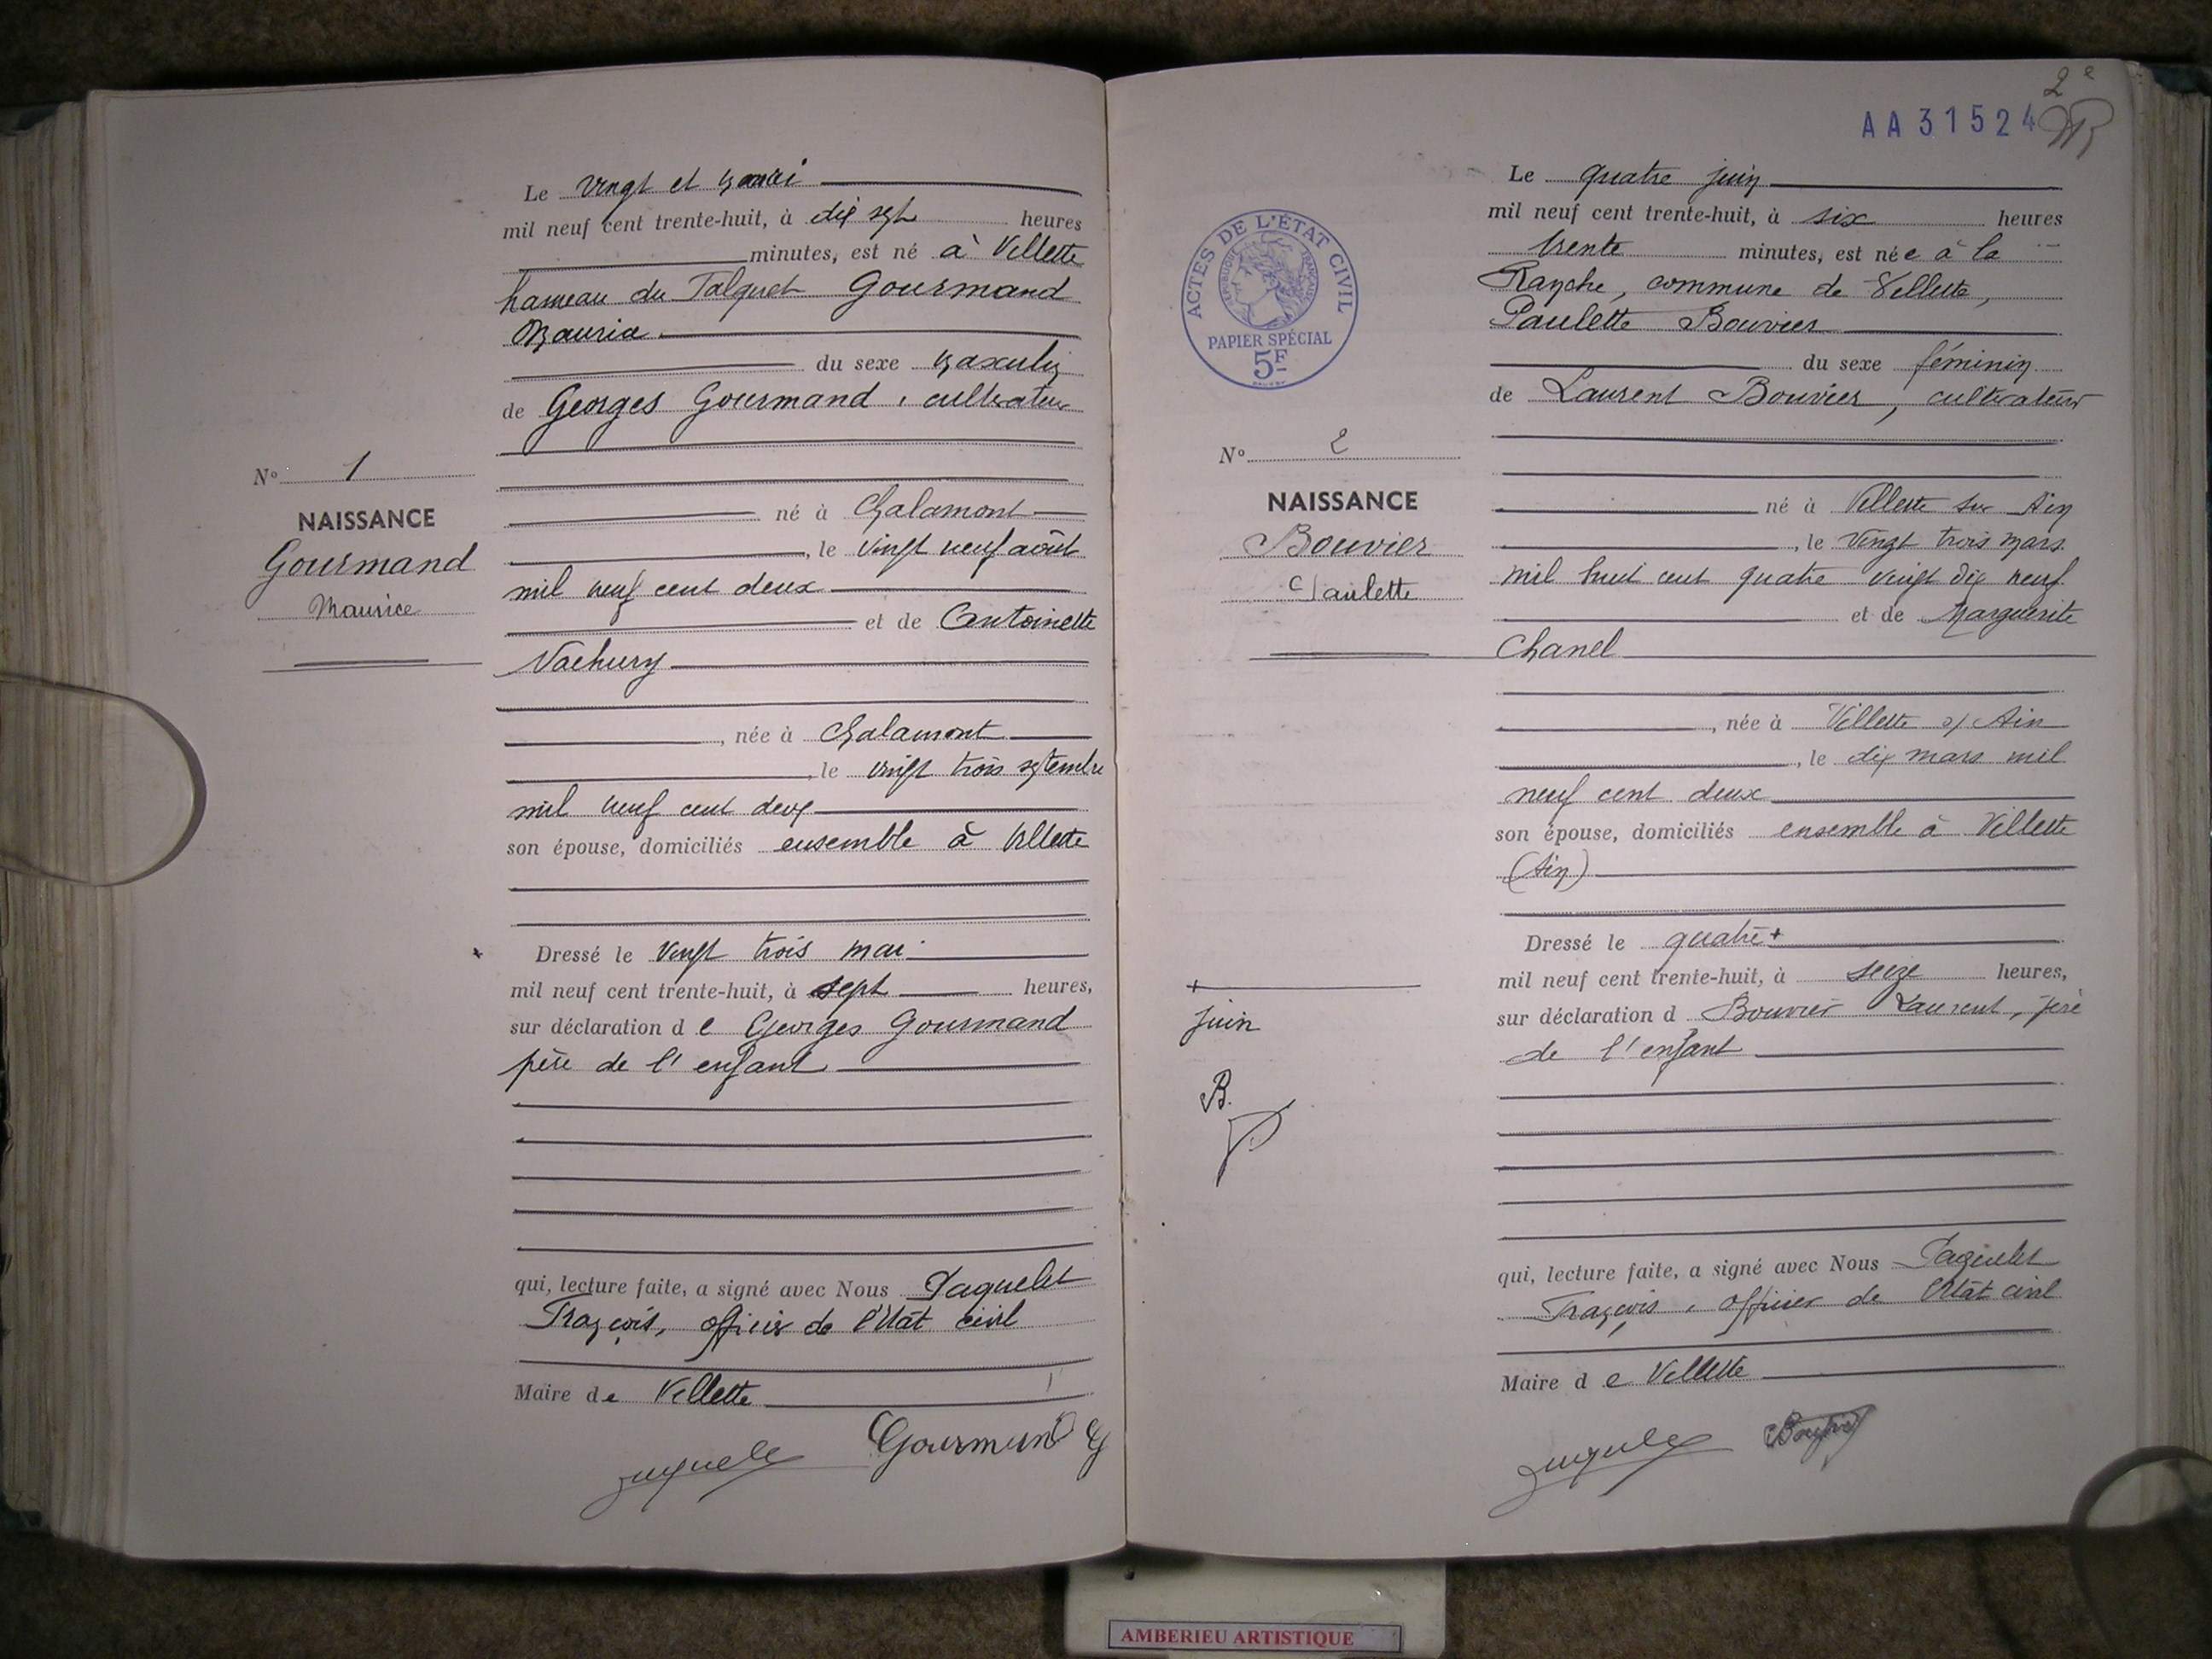 Le vingt et un mai
mil neuf cent trente-huit, à dix sept heures
minutes, est né à Villette
hameau du Talquet Gourmand
Maurice
du sexe masculin
de Georges Gourmand, cultivateur
N° 1
NAISSANCE
Gourmand
Maurice
né à Chalamont
, le vingt neuf août
mil neuf cent deux
et de Antoinette
Vachury
, née à Chalamont
, le vingt trois septembre
mil neuf cent deux
son épouse, domiciliés ensemble à Villette
Dressé le vingt trois mai
mil neuf cent trente-huit, à sept heures,
sur déclaration de Georges Gourmand
père de l'enfant
qui, lecture faite, a signé avec Nous Jaquelet
François, officier de l'Etat civil
Maire de Villette
Gourmand G
2e
AA31524
ACTES DE L'ÉTAT CIVIL
RÉPUBLIQUE FRANÇAISE
PAPIER SPÉCIAL
5F
Le quatre juin
mil neuf cent trente-huit, à six heures
trente minutes, est née à la
Ranche, commune de Villette,
Paulette Bouvier
du sexe féminin
de Laurent Bouvier, cultivateur
N° 2
NAISSANCE
Bouvier
Paulette
né à Villette sur Ain
, le vingt trois mars
mil huit cent quatre vingt dix neuf
et de Marguerite
Chanel
, née à Villette s/ Ain
, le dix mars mil
neuf cent deux
son épouse, domiciliés ensemble à Villette
(Ain)
Dressé le quatre +
mil neuf cent trente-huit, à seize heures,
sur déclaration d Bouvier Laurent, père
de l'enfant
+
juin
B.
J.
qui, lecture faite, a signé avec Nous Jaquelet
François, officier de l'Etat civil
Maire de Villette
Bouvier
AMBERIEU ARTISTIQUE